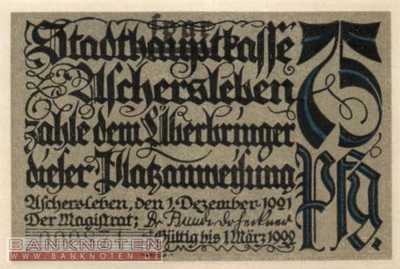 Stadthauptkasse
Aschersleben
zahle dem Überbringer
dieser Platzanweisung
Aschersleben, den 1. Dezember 1921
Der Magistrat;
Gültig bis 1. März 1922
75
Pfg.
BANKNOTEN
WWW.BANKNOTEN.DE